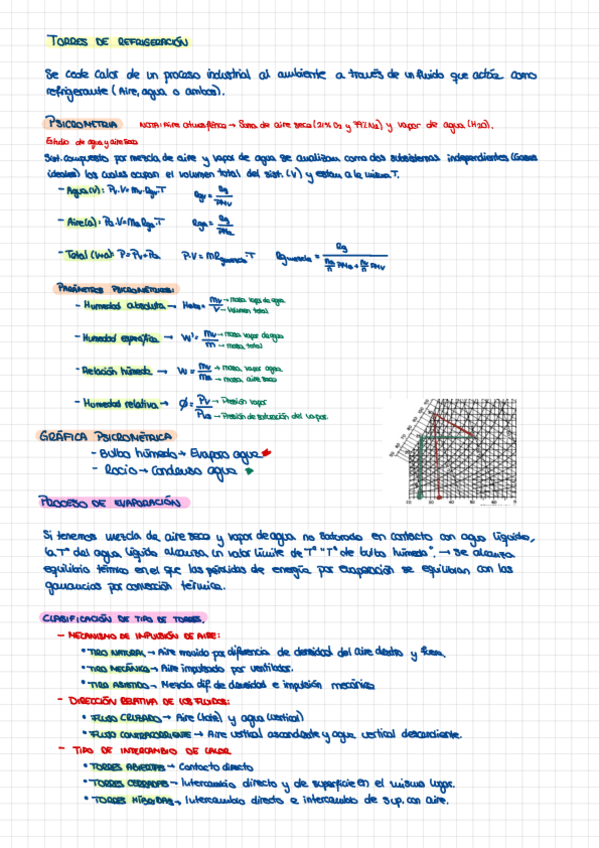 TORRES DE REFRIGERACIÓN
Se cede calor de un proceso industrial al ambiente a través de un fluido que actúe como
refrigerante (Aire, agua o ambos).
PSICROMETRIA NOTA: Aire atmosférico → Suma de aire seco (21% O2 y 79% N2) y vapor de agua (H2O).
Estudio de agua y aire seco
Sist. compuesto por mezcla de aire y vapor de agua se analizan como dos subsistemas independientes (Gases
ideales) los cuales ocupan el volumen total del sist. (V) y estan a la misma T.
- Agua(v): Pv·V = mv·Rgv·T Rgv = Rg/PMv
- Aire(a): Pa·V = ma·Rga·T Rga = Rg/PMa
- Total (v+a): P = Pv + Pa P·V = m·Rgmezcla·T Rgmezcla = Rg / (na/n PMa + nv/n PMv)
PARÁMETROS PSICROMÉTRICOS:
- Humedad absoluta → Habs = mv/V → masa vapor de agua → Volumen total
- Humedad específica → W' = mv/m → masa vapor de agua → masa total
- Relación húmeda → W = mv/ma → masa vapor agua → masa aire seco
- Humedad relativa → Ø = Pv/Pvs → Presión vapor → Presión de saturación del vapor.
GRÁFICA PSICROMÉTRICA
- Bulbo húmedo → Evapora agua
- Rocío → Condensa agua
PROCESO DE EVAPORACIÓN
Si tenemos mezcla de aire seco y vapor de agua no saturado en contacto con agua líquida,
la Tª del agua líquida alcanza un valor límite de Tª "Tª de bulbo húmedo". → Se alcanza
equilibrio térmico en el que las pérdidas de energía por evaporación se equilibran con las
ganancias por convección térmica.
CLASIFICACIÓN DE TIPO DE TORRES.
- MECANISMO DE IMPULSIÓN DE AIRE:
• TIRO NATURAL → Aire movido por diferencia de densidad del aire dentro y fuera.
• TIRO MECÁNICO → Aire impulsado por ventilador.
• TIRO ASISTIDO → Mezcla dif. de densidad e impulsión mecánica
- DIRECCIÓN RELATIVA DE LOS FLUIDOS:
• FLUJO CRUZADO → Aire (lateral) y agua (vertical)
• FLUJO CONTRACORRIENTE → Aire vertical ascendente y agua vertical descendiente.
- TIPO DE INTERCAMBIO DE CALOR
• TORRES ABIERTAS → Contacto directo
• TORRES CERRADAS → Intercambio directo y de superficie en el mismo lugar.
• TORRES HÍBRIDAS → Intercambio directo e intercambio de sup. con aire.